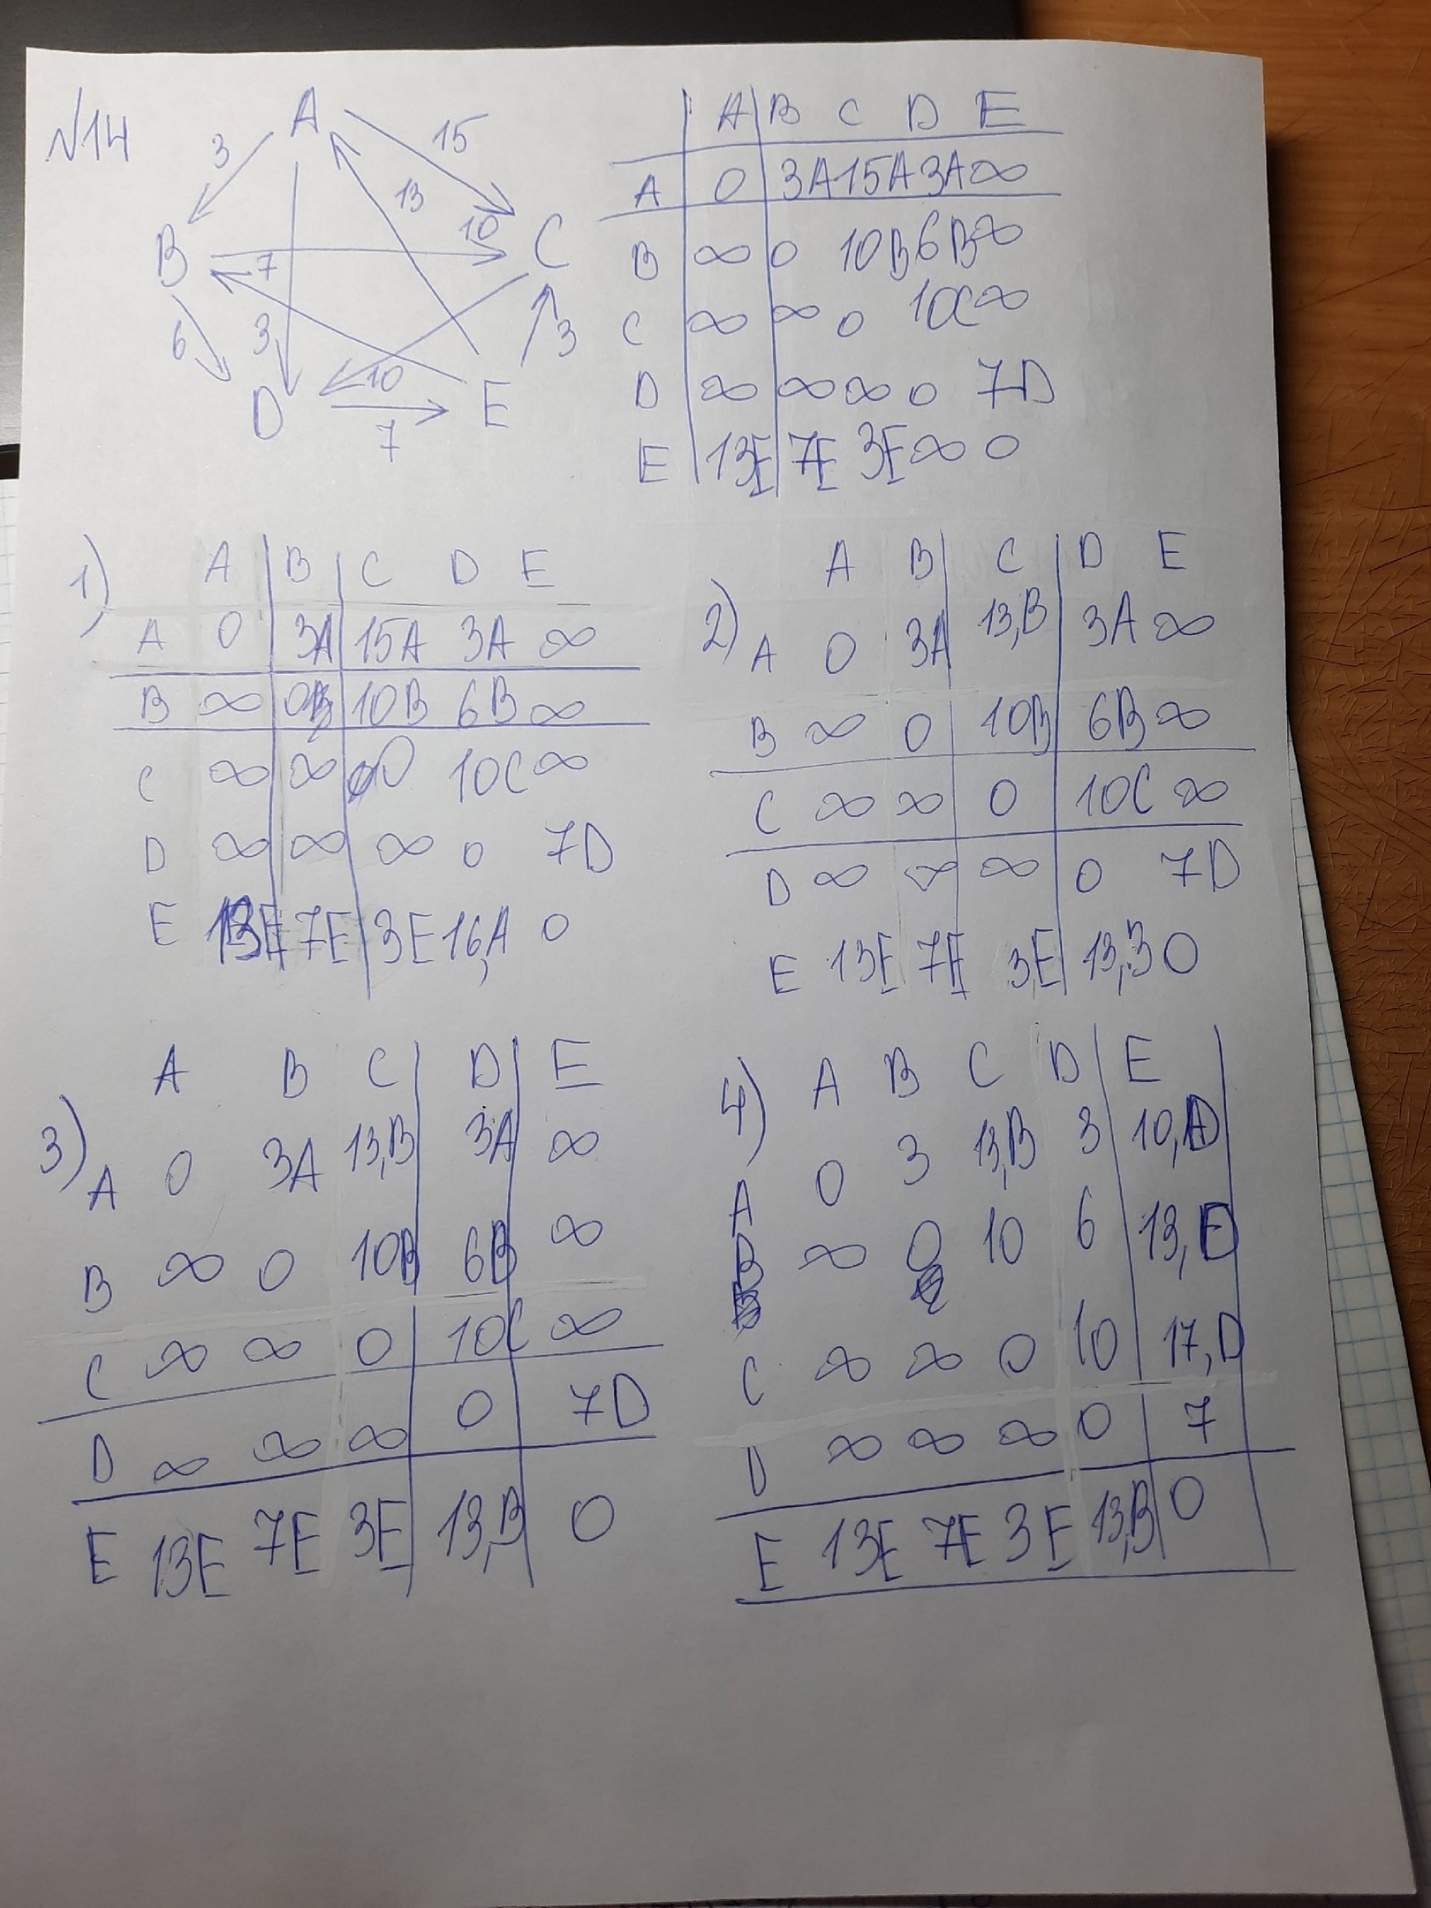 №14
A
3
15
13
10
B
C
7
6
3
3
10
D
E
7
A B C D E
A 0 3A 15A 3A ∞
B ∞ 0 10B 6B ∞
C ∞ ∞ 0 10C ∞
D ∞ ∞ ∞ 0 7D
E 13E 7E 3E ∞ 0
1) A B C D E
A 0 3A 15A 3A ∞
B ∞ 0 10B 6B ∞
C ∞ ∞ 0 10C ∞
D ∞ ∞ ∞ 0 7D
E 13E 7E 3E 16,A 0
2) A B C D E
A 0 3A 13,B 3A ∞
B ∞ 0 10B 6B ∞
C ∞ ∞ 0 10C ∞
D ∞ ∞ ∞ 0 7D
E 13E 7E 3E 13,B 0
3) A B C D E
A 0 3A 13,B 3A ∞
B ∞ 0 10B 6B ∞
C ∞ ∞ 0 10C ∞
D ∞ ∞ ∞ 0 7D
E 13E 7E 3E 13,B 0
4) A B C D E
A 0 3 13,B 3 10,D
B ∞ 0 10 6 13,D
C ∞ ∞ 0 10 17,D
D ∞ ∞ ∞ 0 7
E 13E 7E 3E 13,B 0